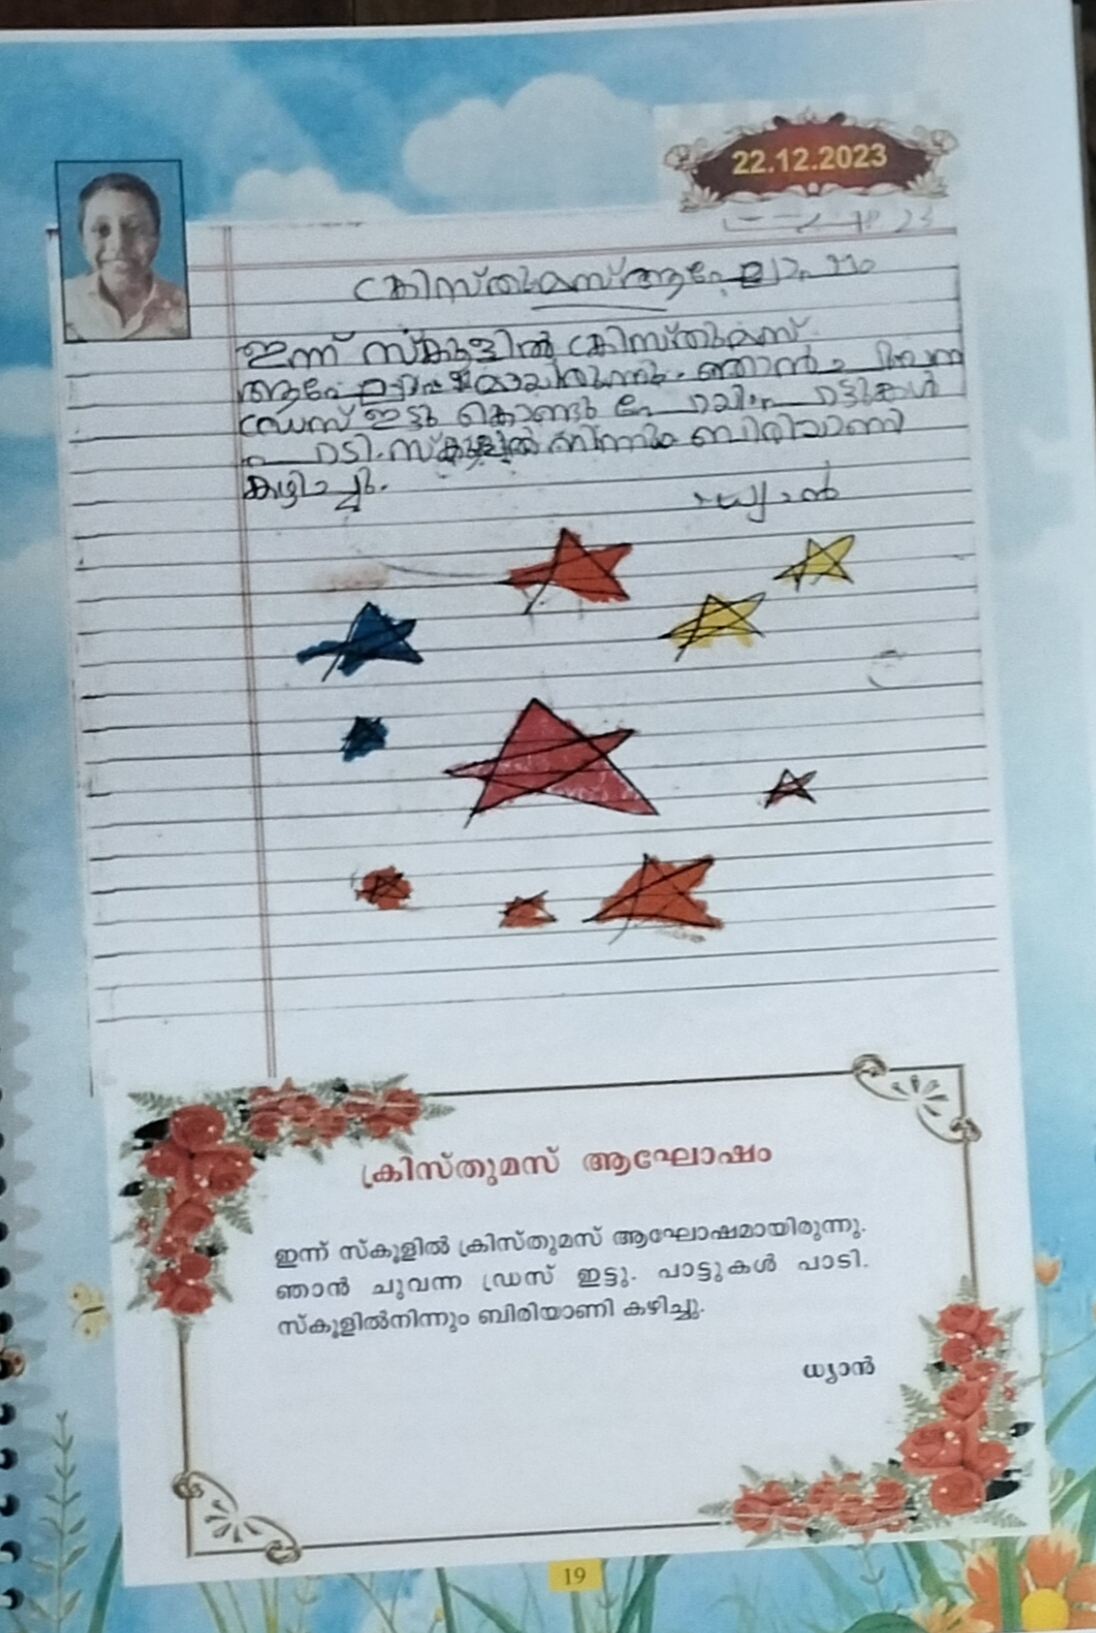 22.12.2023
ക്രിസ്തുമസ് ആഘോഷം
ഇന്ന് സ്കൂളിൽ ക്രിസ്തുമസ്
ഞാൻ
ഡ്രസ് ഇട്ടു കൊണ്ടു
സ്കൂളിൽ നിന്നും ബിരിയാണി
കഴിച്ചു.
ധ്യാൻ
ക്രിസ്തുമസ് ആഘോഷം
ഇന്ന് സ്കൂളിൽ ക്രിസ്തുമസ് ആഘോഷമായിരുന്നു.
ഞാൻ ചുവന്ന ഡ്രസ് ഇട്ടു. പാട്ടുകൾ പാടി.
സ്കൂളിൽനിന്നും ബിരിയാണി കഴിച്ചു.
ധ്യാൻ
19